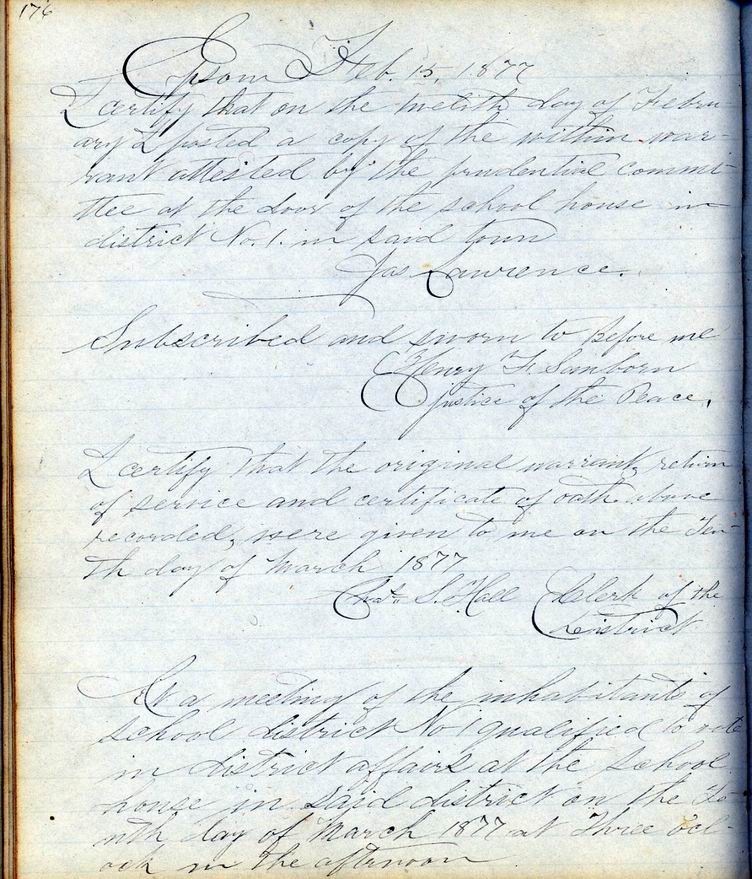 176
Epsom Feb. 15, 1877
I certify that on the twelfth day of Febru-
ary I posted a copy of the within war-
rant attested by the prudential commi-
ttee at the door of the school house in
district No. 1. in said town
Jas Lawrence.
Subscribed and sworn to before me
Henry F. Sanborn
Justice of the Peace.
I certify that the original warrant, return
of service and certificate of oath above
recorded, were given to me on the Ten-
th day of March 1877
Chas. S. Hall Clerk of the
District
At a meeting of the inhabitants of
school district No 1 qualified to vote
in district affairs at the school
house in said district on the Te-
nth day of March 1877 at Three Ocl-
ock in the afternoon